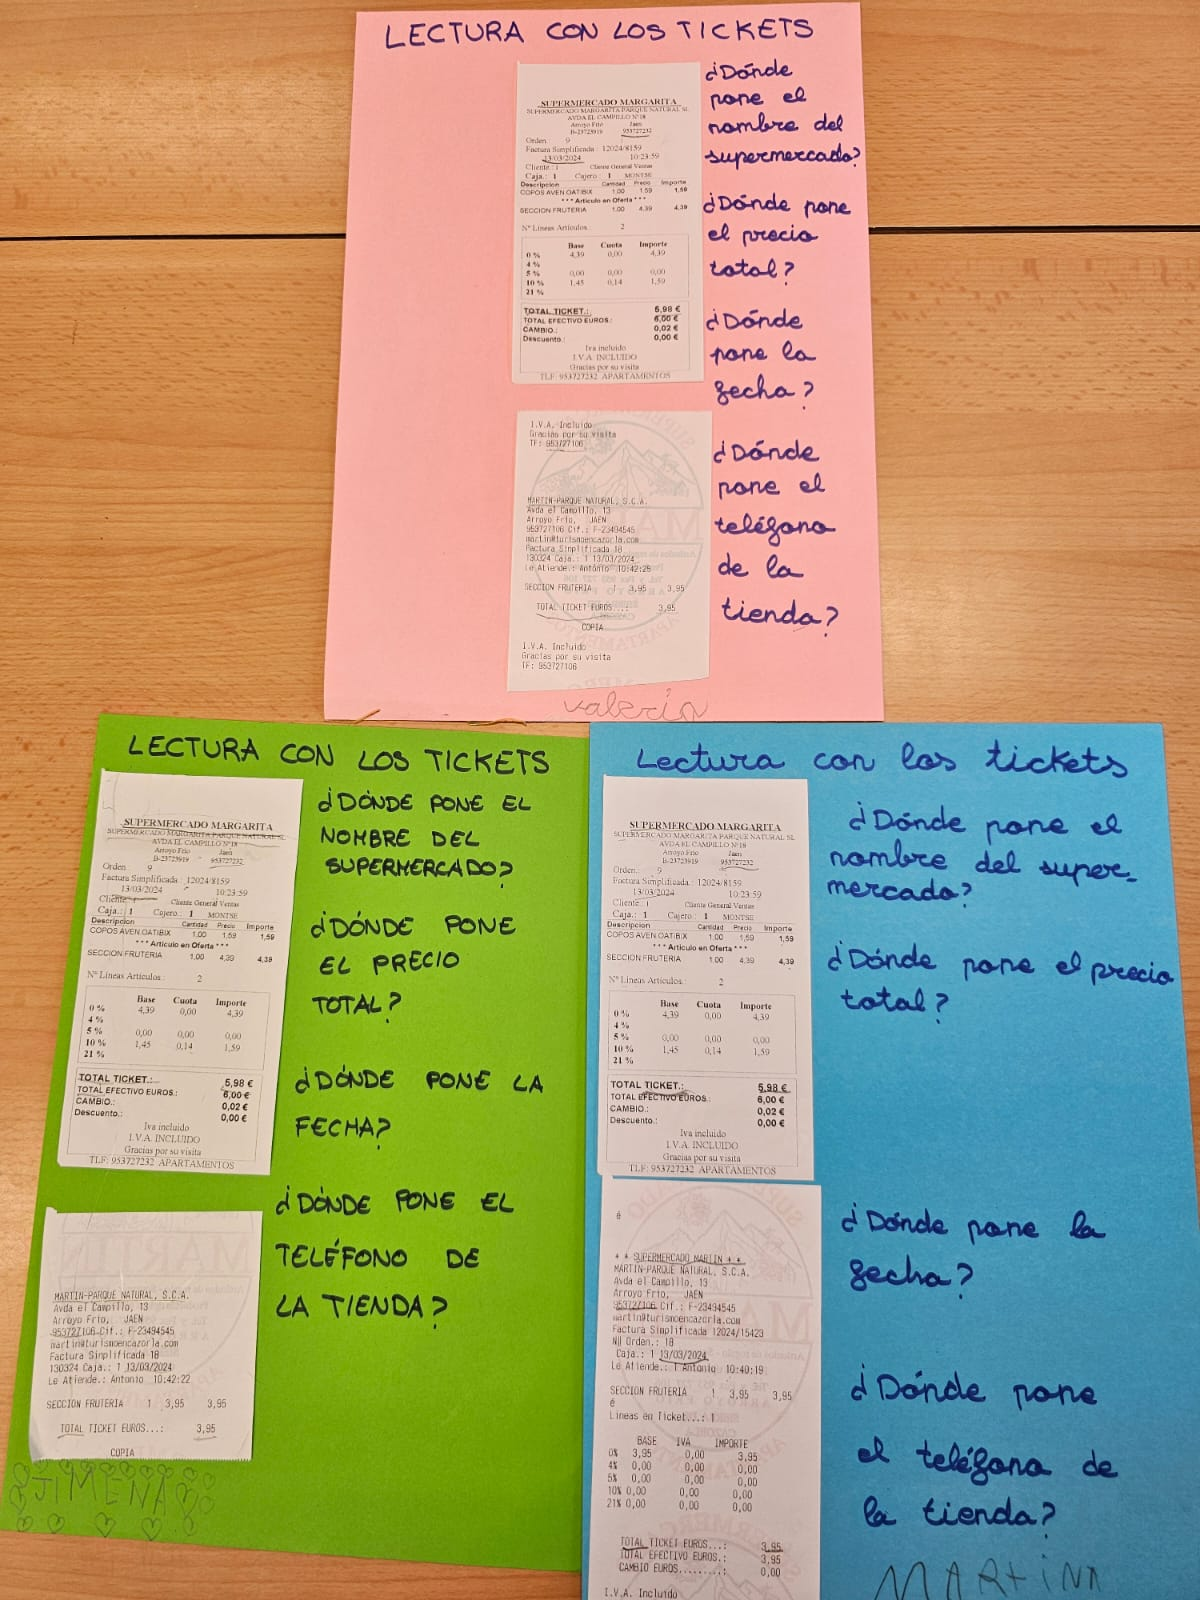 LECTURA CON LOS TICKETS
SUPERMERCADO MARGARITA
SUPERMERCADO MARGARITA PARQUE NATURAL SL
AVDA EL CAMPILLO Nº18
Arroyo Frio Jaen
B-23725919 953727232
Orden: 9
Factura Simplificada: 12024/8159
13/03/2024 10:23:59
Cliente: 1 Cliente General Ventas
Caja.: 1 Cajero: 1 MONTSE
Descripcion Cantidad Precio Importe
COPOS AVEN.OATIBIX 1,00 1,59 1,59
*** Articulo en Oferta ***
SECCION FRUTERIA 1,00 4,39 4,39
Nº Lineas Articulos: 2
Base Cuota Importe
0 % 4,39 0,00 4,39
4 %
5 % 0,00 0,00 0,00
10 % 1,45 0,14 1,59
21 %
TOTAL TICKET.: 5,98 €
TOTAL EFECTIVO EUROS.: 6,00 €
CAMBIO.: 0,02 €
Descuento.: 0,00 €
Iva incluido
I.V.A. INCLUIDO
Gracias por su visita
TLF: 953727232 APARTAMENTOS
¿Dónde
pone el
nombre del
supermercado?
¿Dónde pone
el precio
total?
¿Dónde
pone la
fecha?
¿Dónde
pone el
teléfono
de la
tienda?
I.V.A. Incluido
Gracias por su visita
TF: 953727106
MARTIN-PARQUE NATURAL, S.C.A.
Avda el Campillo, 13
Arroyo Frio, JAEN
953727106 Cif.: F-23494545
martin@turismoencazorla.com
Factura Simplificada 18
130324 Caja: 1 13/03/2024
Le Atiende.: Antonio 10:42:25
SECCION FRUTERIA 1 3,95 3,95
TOTAL TICKET EUROS...: 3,95
COPIA
I.V.A. Incluido
Gracias por su visita
TF: 953727106
valerin
LECTURA CON LOS TICKETS
SUPERMERCADO MARGARITA
SUPERMERCADO MARGARITA PARQUE NATURAL SL
AVDA EL CAMPILLO Nº18
Arroyo Frio Jaen
B-23725919 953727232
Orden: 9
Factura Simplificada: 12024/8159
13/03/2024 10:23:59
Cliente: 1 Cliente General Ventas
Caja.: 1 Cajero: 1 MONTSE
Descripcion Cantidad Precio Importe
COPOS AVEN.OATIBIX 1,00 1,59 1,59
*** Articulo en Oferta ***
SECCION FRUTERIA 1,00 4,39 4,39
Nº Lineas Articulos: 2
Base Cuota Importe
0 % 4,39 0,00 4,39
4 %
5 % 0,00 0,00 0,00
10 % 1,45 0,14 1,59
21 %
TOTAL TICKET.: 5,98 €
TOTAL EFECTIVO EUROS.: 6,00 €
CAMBIO.: 0,02 €
Descuento.: 0,00 €
Iva incluido
I.V.A. INCLUIDO
Gracias por su visita
TLF: 953727232 APARTAMENTOS
¿DÓNDE PONE EL
NOMBRE DEL
SUPERMERCADO?
¿DÓNDE PONE
EL PRECIO
TOTAL?
¿DÓNDE PONE LA
FECHA?
¿DÓNDE PONE EL
TELÉFONO DE
LA TIENDA?
MARTIN-PARQUE NATURAL, S.C.A.
Avda el Campillo, 13
Arroyo Frio, JAEN
953727106 Cif.: F-23494545
martin@turismoencazorla.com
Factura Simplificada 18
130324 Caja: 1 13/03/2024
Le Atiende.: Antonio 10:42:22
SECCION FRUTERIA 1 3,95 3,95
TOTAL TICKET EUROS...: 3,95
COPIA
JIMENA
Lectura con los tickets
SUPERMERCADO MARGARITA
SUPERMERCADO MARGARITA PARQUE NATURAL SL
AVDA EL CAMPILLO Nº18
Arroyo Frio Jaen
B-23725919 953727232
Orden: 9
Factura Simplificada: 12024/8159
13/03/2024 10:23:59
Cliente: 1 Cliente General Ventas
Caja.: 1 Cajero: 1 MONTSE
Descripcion Cantidad Precio Importe
COPOS AVEN.OATIBIX 1,00 1,59 1,59
*** Articulo en Oferta ***
SECCION FRUTERIA 1,00 4,39 4,39
Nº Lineas Articulos: 2
Base Cuota Importe
0 % 4,39 0,00 4,39
4 %
5 % 0,00 0,00 0,00
10 % 1,45 0,14 1,59
21 %
TOTAL TICKET.: 5,98 €
TOTAL EFECTIVO EUROS.: 6,00 €
CAMBIO.: 0,02 €
Descuento.: 0,00 €
Iva incluido
I.V.A. INCLUIDO
Gracias por su visita
TLF: 953727232 APARTAMENTOS
¿Dónde pone el
nombre del super-
mercado?
¿Dónde pone el precio
total?
¿Dónde pone la
fecha?
¿Dónde pone
el teléfono de
la tienda?
é
* * SUPERMERCADO MARTIN * *
MARTIN-PARQUE NATURAL, S.C.A.
Avda el Campillo, 13
Arroyo Frio, JAEN
953727106 Cif.: F-23494545
martin@turismoencazorla.com
Factura Simplificada 12024/15423
Nº Orden.: 18
Caja.: 1 13/03/2024
Le Atiende.: 1 Antonio 10:40:19
SECCION FRUTERIA 1 3,95 3,95
é
Lineas en Ticket...: 1
BASE IVA IMPORTE
0% 3,95 0,00 3,95
4% 0,00 0,00 0,00
5% 0,00 0,00 0,00
10% 0,00 0,00 0,00
21% 0,00 0,00 0,00
TOTAL TICKET EUROS...: 3,95
TOTAL EFECTIVO EUROS.: 3,95
CAMBIO EUROS.........: 0,00
I.V.A. Incluido
MARtiNA